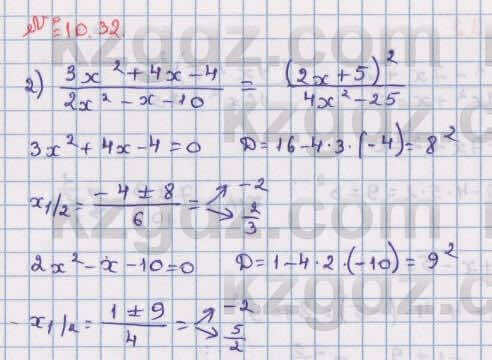 №10.32.
2) (3x² + 4x - 4)/(2x² - x - 10) = (2x + 5)²/(4x² - 25)
3x² + 4x - 4 = 0   D = 16 - 4·3·(-4) = 8²
x₁/₂ = (-4 ± 8)/6 = -2; 2/3
2x² - x - 10 = 0   D = 1 - 4·2·(-10) = 9²
x₁/₂ = (1 ± 9)/4 = -2; 5/2